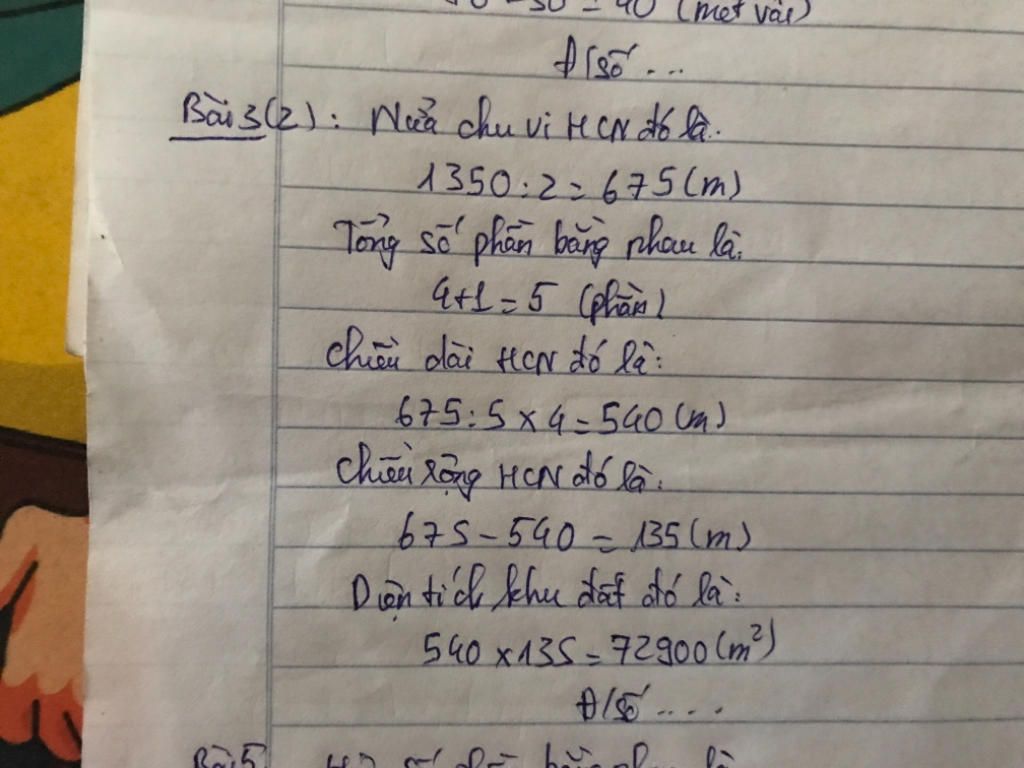 - 30 = 40 (mét vải)
Đ/số ...
Bài 3(2): Nửa chu vi HCN đó là.
1350 : 2 = 675 (m)
Tổng số phần bằng nhau là:
4+1 = 5 (phần)
Chiều dài HCN đó là:
675 : 5 x 4 = 540 (m)
Chiều rộng HCN đó là:
675 - 540 = 135 (m)
Diện tích khu đất đó là:
540 x 135 = 72900 (m²)
Đ/số ....
Bài 5 số phần bằng nhau là